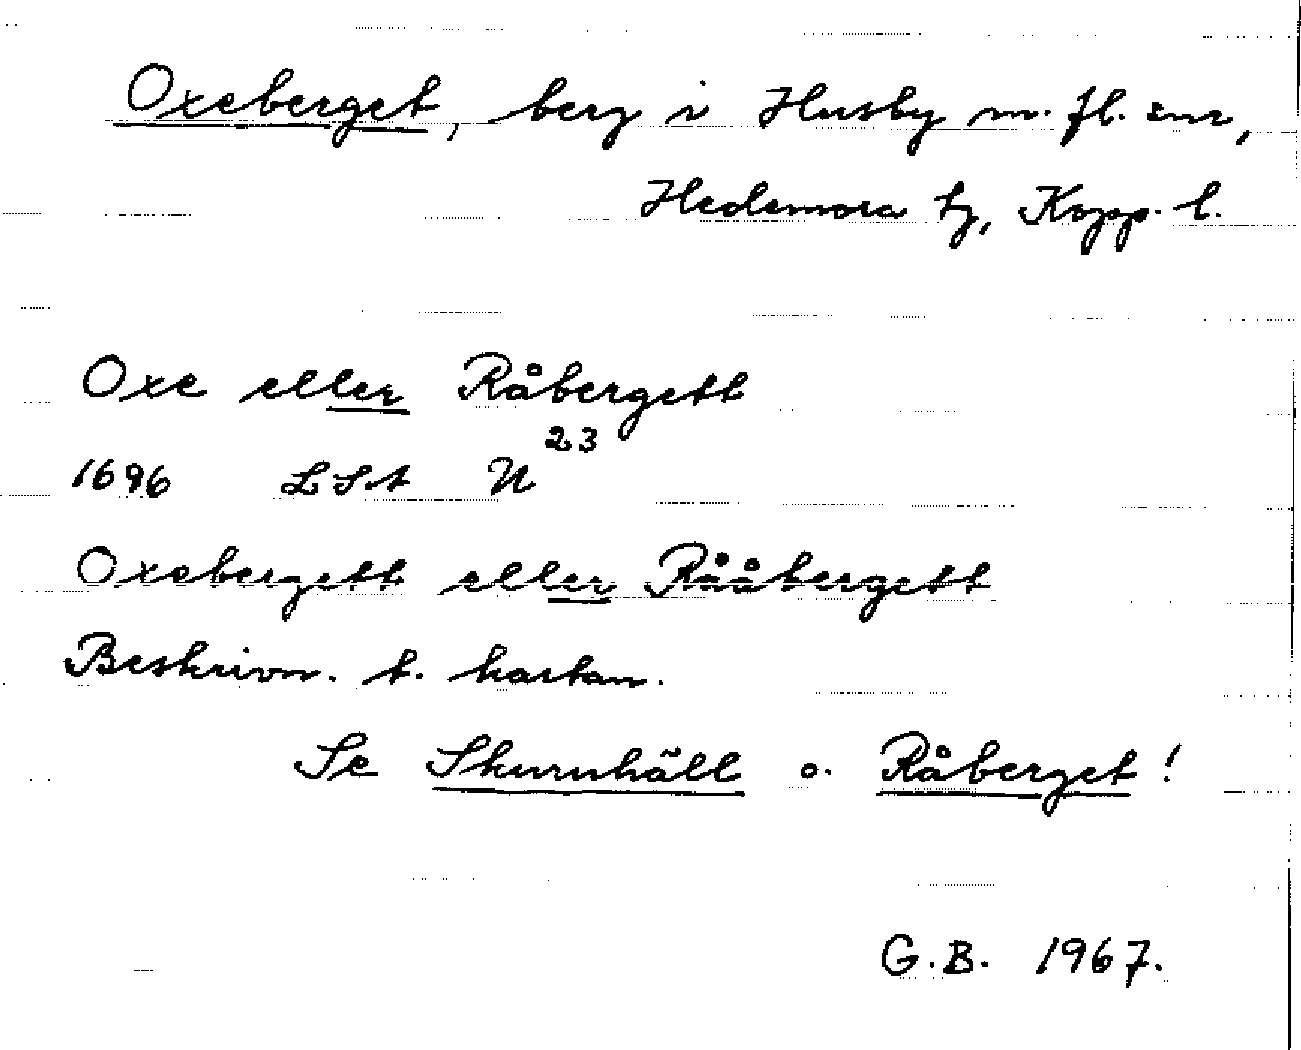 Oxeberget, berg i Husby m. fl. snr,
Hedemora tg, Kopp. l.
Oxe eller Råbergett
1696 LSt N 23
Oxebergett eller Rååbergett
Beskrivn. t. kartan.
Se Skuruhäll o. Råberget!
G.B. 1967.